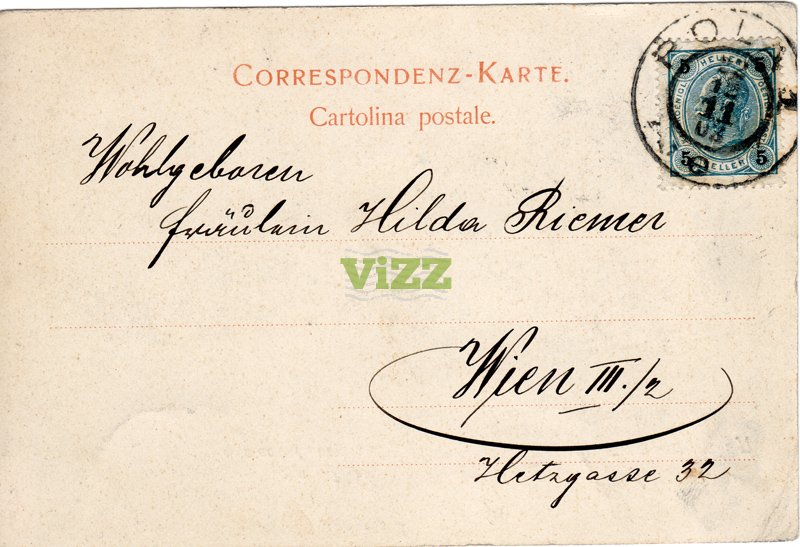 CORRESPONDENZ-KARTE.
Cartolina postale.
POLA
5 HELLER 5
12
11
03
5 HELLER 5
Wohlgeboren
Fräulein Hilda Riemer
ViZZ
Wien III./2
Hetzgasse 32